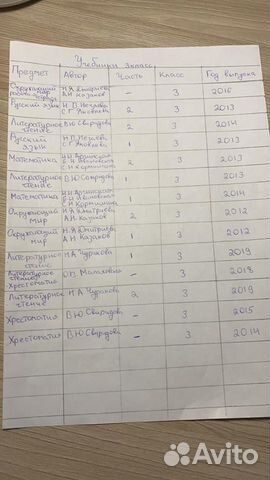 Учебники 3 класс
Предмет Автор Часть Класс Год выпуска
Окружающий мир Н.Я. Дмитриева А.Н. Казаков - 3 2016
Русский язык Н.В. Нечаева С.Г. Яковлева 2 3 2013
Литературное чтение В.Ю Свиридова 2 3 2014
Русский язык Н.В. Нечаева С.Г. Яковлева 1 3 2013
Математика И.И Аргинская Е.И. Ивановская С.Н Кормишина 2 3 2013
Литературное чтение В.Ю Свиридова 1 3 2013
Математика И.И Аргинская Е.И Ивановская С.Н Кормишина 1 3 2014
Окружающий мир Н.Я Дмитриева А.Н. Казаков 2 3 2012
Окружающий мир Н.Я Дмитриева А.Н Казаков 1 3 2012
Литературное чтение Н.А Чуракова 1 3 2019
Литературное чтение Хрестоматия О.В. - 3 2018
Литературное чтение Н.А Чуракова 2 3 2019
Хрестоматия В.Ю Свиридова - 3 2015
Хрестоматия В.Ю Свиридова - 3 2014
Avito